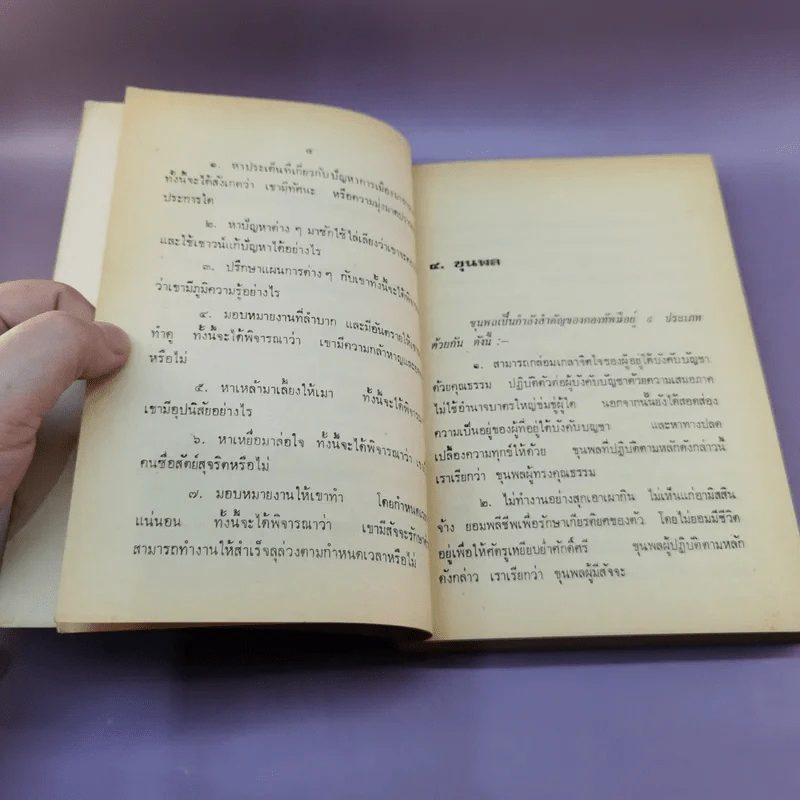 ๗
๑. หาประเด็นที่เกี่ยวกับปัญหาการเมืองมา
ทั้งนี้จะได้สังเกตว่า เขามีทัศนะ หรือความมุ่งมาด
ประการใด
๒. หาปัญหาต่าง ๆ มาซักไซ้ไล่เลียงว่าเขาจะ
และใช้เชาวน์แก้ปัญหาได้อย่างไร
๓. ปรึกษาแผนการต่างๆ กับเขาทั้งนี้จะได้
ว่าเขามีภูมิความรู้อย่างไร
๔. มอบหมายงานที่ลำบาก และมีอันตรายให้
ทำดู ทั้งนี้จะได้พิจารณาว่า เขามีความกล้าหาญและ
หรือไม่
๕. หาเหล้ามาเลี้ยงให้เมา ทั้งนี้จะได้
เขามีอุปนิสัยอย่างไร
๖. หาเหยื่อมาล่อใจ ทั้งนี้จะได้พิจารณาว่า
คนซื่อสัตย์สุจริตหรือไม่
๗. มอบหมายงานให้เขาทำ โดยกำหนดเวลา
แน่นอน ทั้งนี้จะได้พิจารณาว่า เขามีสัจจะรักษา
สามารถทำงานให้สำเร็จลุล่วงตามกำหนดเวลาหรือไม่
๔. ขุนพล
ขุนพลเป็นกำลังสำคัญของกองทัพมีอยู่ ๙ ประเภท
ด้วยกัน ดังนี้ :-
๑. สามารถกล่อมเกลาจิตใจของผู้อยู่ใต้บังคับบัญชา
ด้วยคุณธรรม ปฏิบัติตัวต่อผู้บังคับบัญชาด้วยความเสมอภาค
ไม่ใช้อำนาจบาตรใหญ่ข่มขู่ผู้ใด นอกจากนั้นยังได้สอดส่อง
ความเป็นอยู่ของผู้ที่อยู่ใต้บังคับบัญชา และหาทางปลด
เปลื้องความทุกข์ให้ด้วย ขุนพลที่ปฏิบัติตามหลักดังกล่าวนี้
เราเรียกว่า ขุนพลผู้ทรงคุณธรรม
๒. ไม่ทำงานอย่างสุกเอาเผากิน ไม่เห็นแก่อามิสสิน
จ้าง ยอมพลีชีพเพื่อรักษาเกียรติยศของตัว โดยไม่ยอมมีชีวิต
อยู่เพื่อให้ศัตรูเหยียบย่ำศักดิ์ศรี ขุนพลผู้ปฏิบัติตามหลัก
ดังกล่าว เราเรียกว่า ขุนพลผู้มีสัจจะ